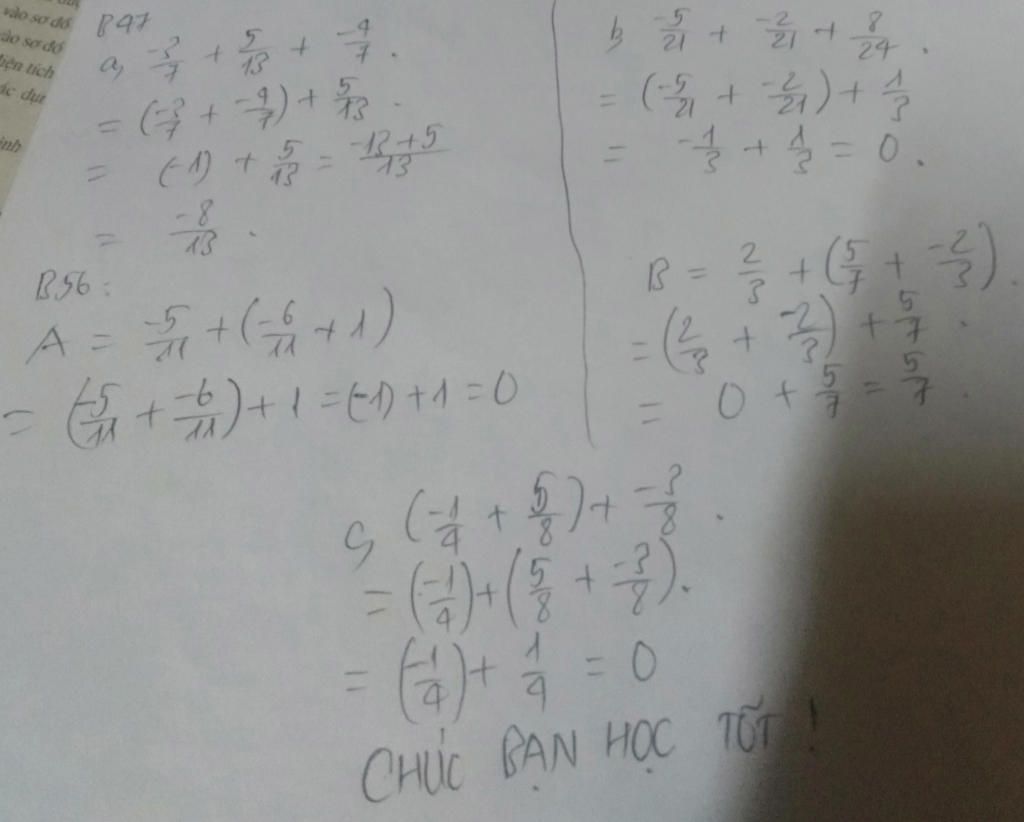 vào sơ đồ
ào sơ đồ
diện tích
B47
a, -3/7 + 5/13 + -4/7 .
= (-3/7 + -4/7) + 5/13 .
= (-1) + 5/13 = -13+5/13
= -8/13 .
b, -5/21 + -2/21 + 8/24 .
= (-5/21 + -2/21) + 1/3
= -1/3 + 1/3 = 0 .
B56:
A = -5/11 + (-6/11 + 1)
= (-5/11 + -6/11) + 1 = (-1) + 1 = 0
B = 2/3 + (5/7 + -2/3) .
= (2/3 + -2/3) + 5/7 .
= 0 + 5/7 = 5/7 .
C, (-1/4 + 5/8) + -3/8 .
= (-1/4) + (5/8 + -3/8) .
= (-1/4) + 1/4 = 0
CHÚC BẠN HỌC TỐT !